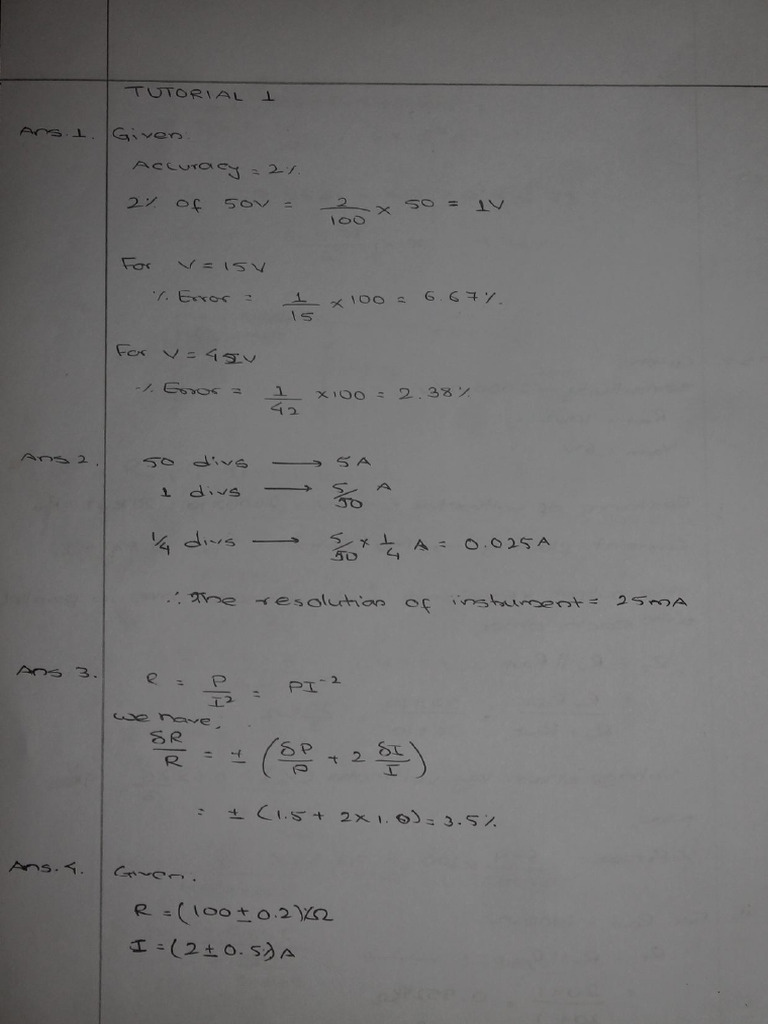 TUTORIAL 1
Ans.1. Given.
Accuracy = 2%
2% of 50V = 2/100 × 50 = 1V
For V = 15V
% Error = 1/15 × 100 = 6.67%.
For V = 42V
% Error = 1/42 × 100 = 2.38%
Ans 2. 50 divs → 5A
1 divs → 5/50 A
1/4 divs → 5/50 × 1/4 A = 0.025A
∴ The resolution of instrument = 25mA
Ans 3. R = P/I² = PI⁻²
we have,
δR/R = ± (δP/P + 2 δI/I)
= ± (1.5 + 2×1.0) = 3.5%
Ans.4. Given.
R = (100 ± 0.2)%Ω
I = (2 ± 0.5)A